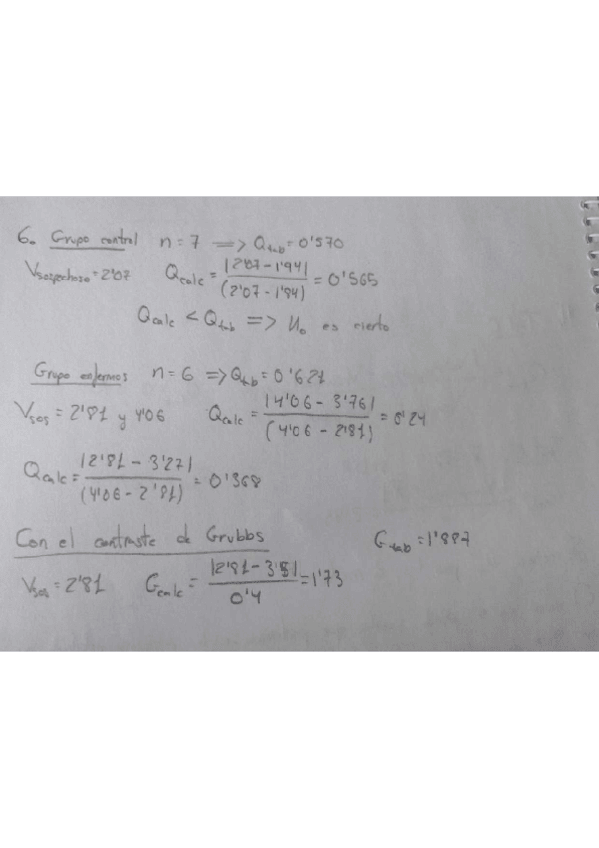 6. Grupo control n = 7 => Qtab = 0'570
Vsospechoso = 2'07 Qcalc = |2'07 - 1'94| / (2'07 - 1'84) = 0'565
Qcalc < Qtab => H₀ es cierto
Grupo enfermos n = 6 => Qtab = 0'621
Vsos = 2'81 y 4'06 Qcalc = |4'06 - 3'76| / (4'06 - 2'81) = 0'24
Qcalc = |2'81 - 3'27| / (4'06 - 2'81) = 0'368
Con el contraste de Grubbs Gtab = 1'887
Vsos = 2'81 Gcalc = |2'81 - 3'5| / 0'4 = 1'73